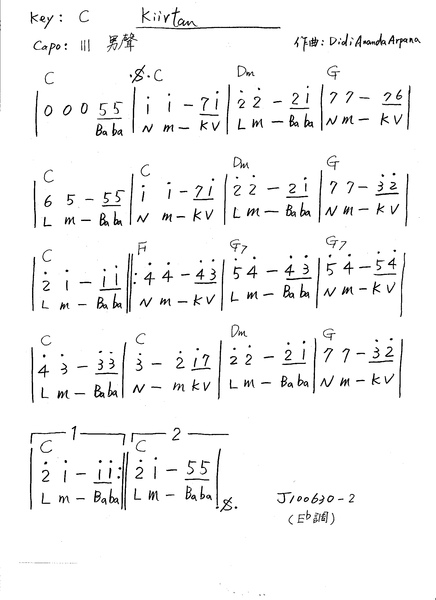 Key: C Kiirtan
Capo: III 男聲 作曲: Didi Ananda Arpana
C 𝄋 C Dm G
| 0 0 0 5 5 | i i – 7 i | 2̇ 2̇ – 2̇ i | 7 7 – 7 6
Ba ba N m – K V L m – Ba ba N m – K V
C C Dm G
| 6 5 – 5 5 | i i – 7 i | 2̇ 2̇ – 2̇ i | 7 7 – 3̇ 2̇
L m – Ba ba N m – K V L m – Ba ba N m – K V
C F G7 G7
| 2̇ i – i i ‖: 4̇ 4̇ – 4̇ 3̇ | 5̇ 4̇ – 4̇ 3̇ | 5̇ 4̇ – 5̇ 4̇
L m – Ba ba N m – K V L m – Ba ba N m – K V
C C Dm G
| 4̇ 3̇ – 3̇ 3̇ | 3̇ – 2̇ i 7 | 2̇ 2̇ – 2̇ i | 7 7 – 3̇ 2̇
L m – Ba ba N – m K V L m – Ba ba N m – K V
1 2
C C
| 2̇ i – i i :‖ 2̇ i – 5 5 |
L m – Ba ba L m – Ba ba 𝄋
J100630-2
(E♭調)